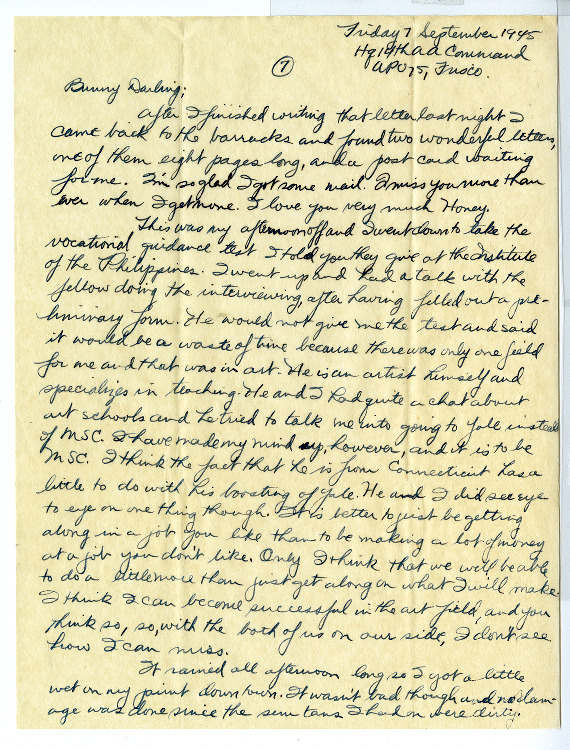 Friday 7 September 1945
Hq 14th AA Command
APO 75, Frisco.
7
Bunny Darling;
After I finished writing that letter last night I
came back to the barracks and found two wonderful letters,
one of them eight pages long, and a post card waiting
for me. I'm so glad I got some mail. I miss you more than
ever when I get none. I love you very much Honey.
This was my afternoon off and I went down to take the
vocational guidance test I told you they give at the Institute
of the Philippines. I went up and had a talk with the
fellow doing the interviewing after having filled out a pre-
liminary form. He would not give me the test and said
it would be a waste of time because there was only one field
for me and that was in art. He is an artist himself and
specializes in teaching. He and I had quite a chat about
art schools and he tried to talk me into going to Yale instead
of MSC. I have made my mind up, however, and it is to be
MSC. I think the fact that he is from Connecticut has a
little to do with his boosting of Yale. He and I did see eye
to eye on one thing though. It is better to just be getting
along in a job you like than to be making a lot of money
at a job you don't like. Only I think that we will be able
to do a little more than just get along on what I will make.
I think I can become successful in the art field, and you
think so, so, with the both of us on our side, I don't see
how I can miss.
It rained all afternoon long so I got a little
wet on my jaunt down town. It wasn't bad though and no dam-
age was done since the sun tans I had on were dirty.